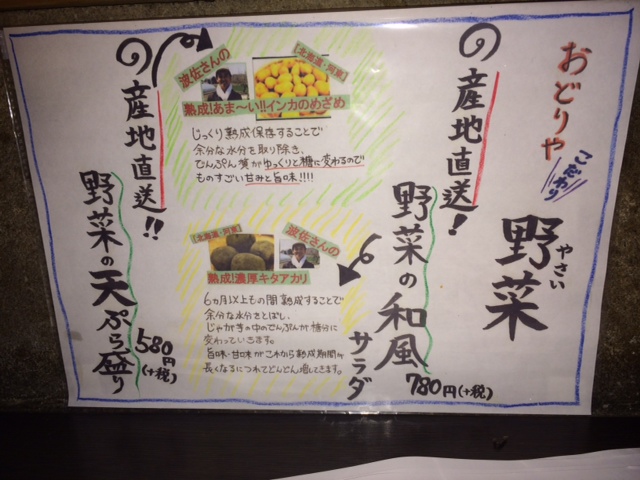 おどりや
こだわり
野菜
やさい
の産地直送!
野菜の和風
サラダ
780円(+税)
【北海道・河東】
波佐さんの
熟成!あま〜い!!インカのめざめ
じっくり熟成保存することで
余分な水分を取り除き、
でんぷん質がゆっくりと糖に変わるので
ものすごい甘みと旨味!!!!
【北海道・河東】
波佐さんの
熟成!濃厚キタアカリ
6カ月以上もの間熟成することで
余分な水分をとばし、
じゃがきの中のでんぷんが糖分に
変わっていきます。
旨味・甘味がこれから熟成期間が
長くなるにつれてどんどん増してきます。
の産地直送!!
野菜の天ぷら盛り
580円
(+税)